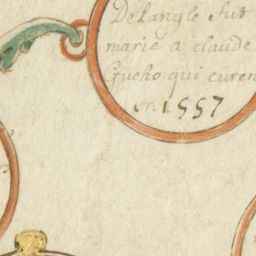 Delangle fut
marie a claude
qui curen
en 1557